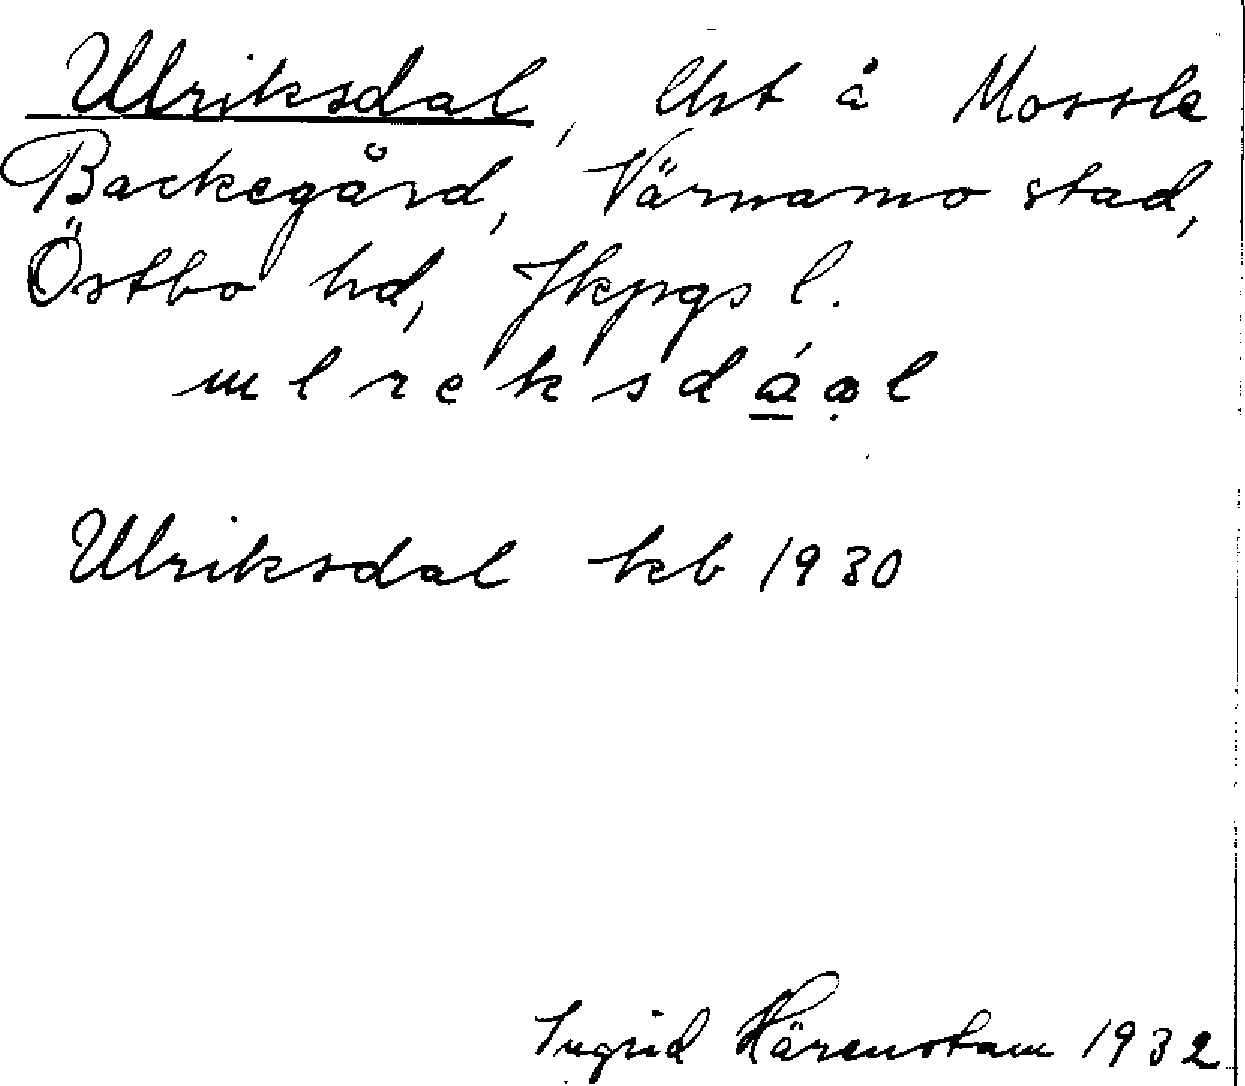 Ulriksdal, lht å Mossle
Backegård, Värnamo stad,
Östbo hd, Jkpgs l.
Ulriksdal kb 1930
Ingrid Härenstam 1932